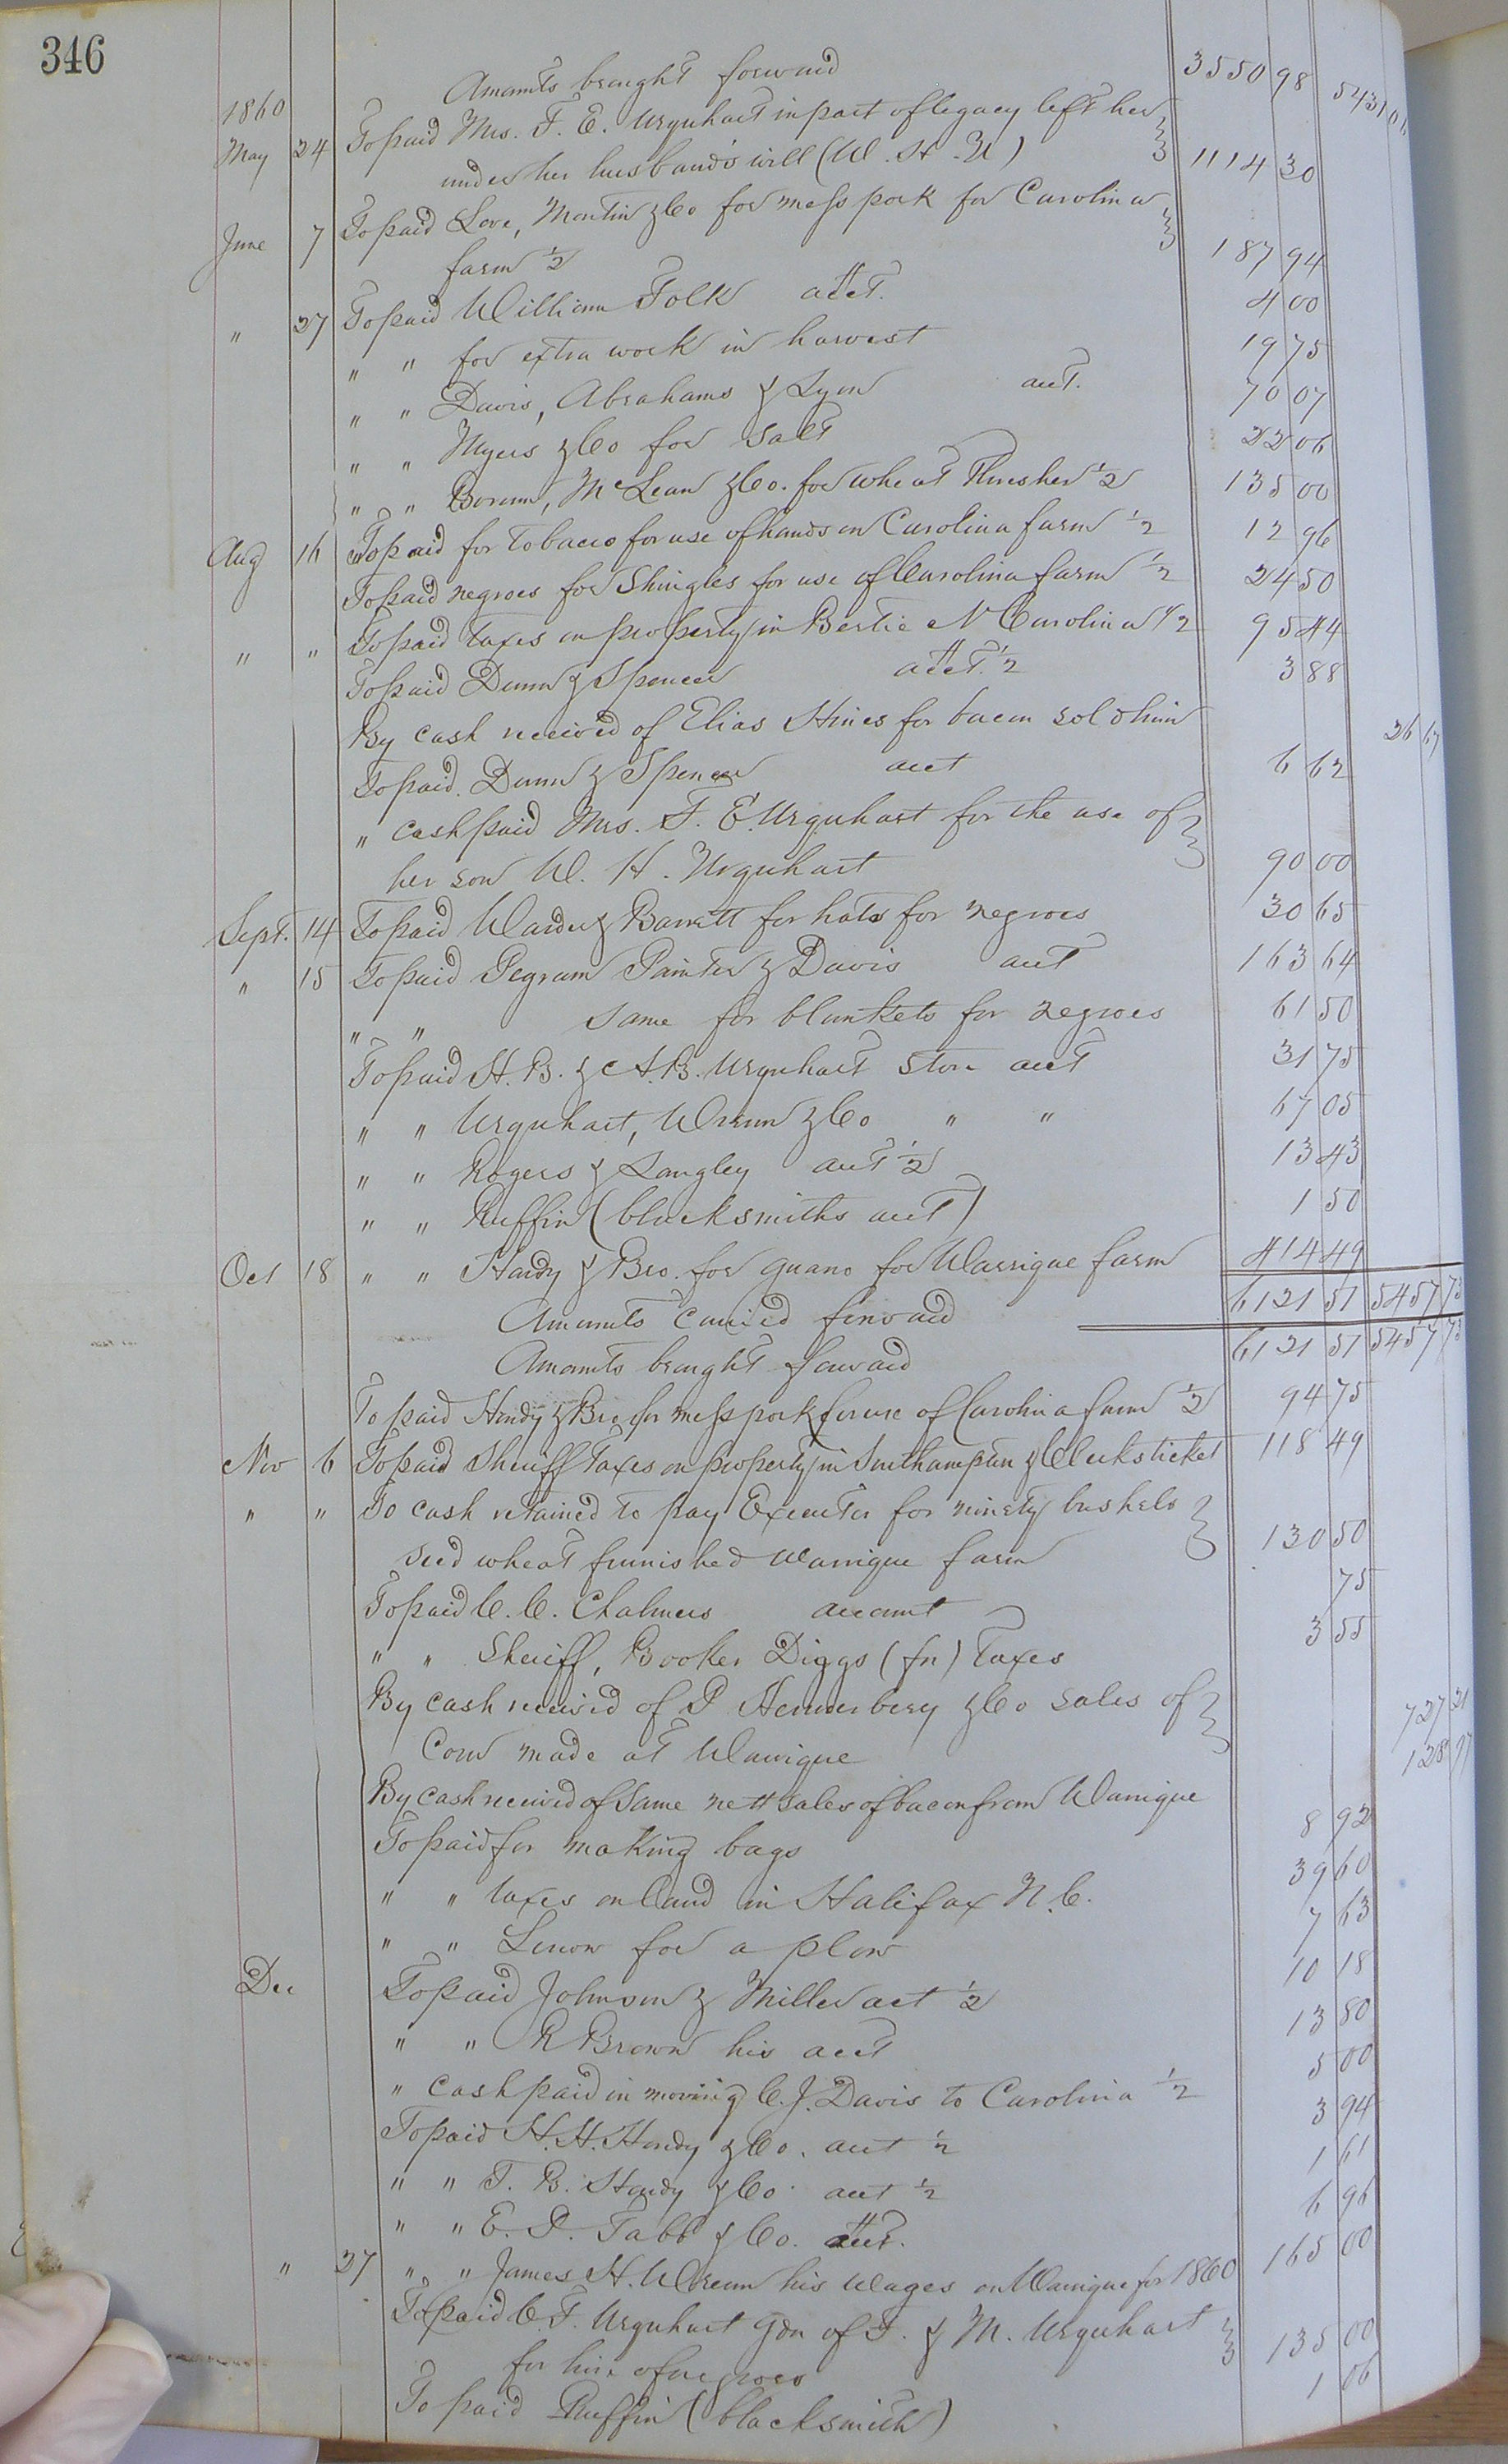 346
Amounts brought forward 3550 98 5431 06
1860
May 24 To paid Mrs. F. E. Urquhart in part of legacy left her
under her husband's will (W. H. U) 1114 30
June 7 To paid Love, Martin & Co for mess pork for Carolina
farm 1/2 187 94
" 27 To paid William Folk acct. 4 00
" " for extra work in harvest 19 75
" " Davis, Abrahams & Lyon acct. 70 07
" " Myers & Co for salt 22 06
" " Borum, McLean & Co. for wheat Thresher 1/2 135 00
Aug 16 To paid for tobacco for use of hands on Carolina farm 1/2 12 96
To paid negroes for Shingles for use of Carolina farm 1/2 24 50
" " To paid taxes on property in Bertie N Carolina 1/2 95 44
To paid Dunn & Spencer acct. 1/2 3 88
By cash received of Elias Hines for bacon sold him 26 67
To paid Dunn & Spencer acct 6 62
" cash paid Mrs. F. E. Urquhart for the use of
her son W. H. Urquhart 90 00
Sept. 14 To paid Warder & Barrett for hats for negroes 30 65
" 15 To paid Pegram Painter & Davis acct 163 64
" " same for blankets for negroes 61 50
To paid H. B. & A. B. Urquhart store acct 31 75
" " Urquhart, Wrenn & Co " " 67 05
" " Rogers & Langley acct 1/2 13 43
" " Ruffin (blacksmiths acct) 1 50
Oct 18 " " Hardy & Bro. for guano for Warrique farm 414 49
Amounts carried forward 6121 51 5457 73
Amounts brought forward 6121 51 5457 73
To paid Hardy & Bro for mess pork for use of Carolina farm 1/2 94 75
Nov 6 To paid Sheriff Taxes on property in Southampton & Clerks ticket 118 49
" " To cash retained to pay Executor for ninety bushels
seed wheat furnished Warrique farm 130 50
To paid C. C. Chalmers account 75
" " Sheriff, Booker Diggs (fn) Taxes 3 55
By cash received of P Hennerbery & Co sales of
Corn made at Warrique 727 21
By cash received of same nett sales of bacon from Warrique 128 77
To paid for making bags 8 92
" " taxes on land in Halifax N. C. 39 60
" " Lenow for a plow 7 63
Dec To paid Johnson & Miller act 1/2 10 18
" " R Brown his acct 13 80
" cash paid in moving C. J. Davis to Carolina 1/2 5 00
To paid H. H. Hardy & Co. acct 1/2 3 94
" " T. B. Hardy & Co. acct 1/2 1 61
" " E. P. Tabb & Co. acct. 6 96
" 27 " " James H. Wrenn his wages on Warrique for 1860 165 00
To paid C. F. Urquhart Gdn of F. & M. Urquhart
for hire of negroes 135 00
To paid Ruffin (blacksmith) 1 06